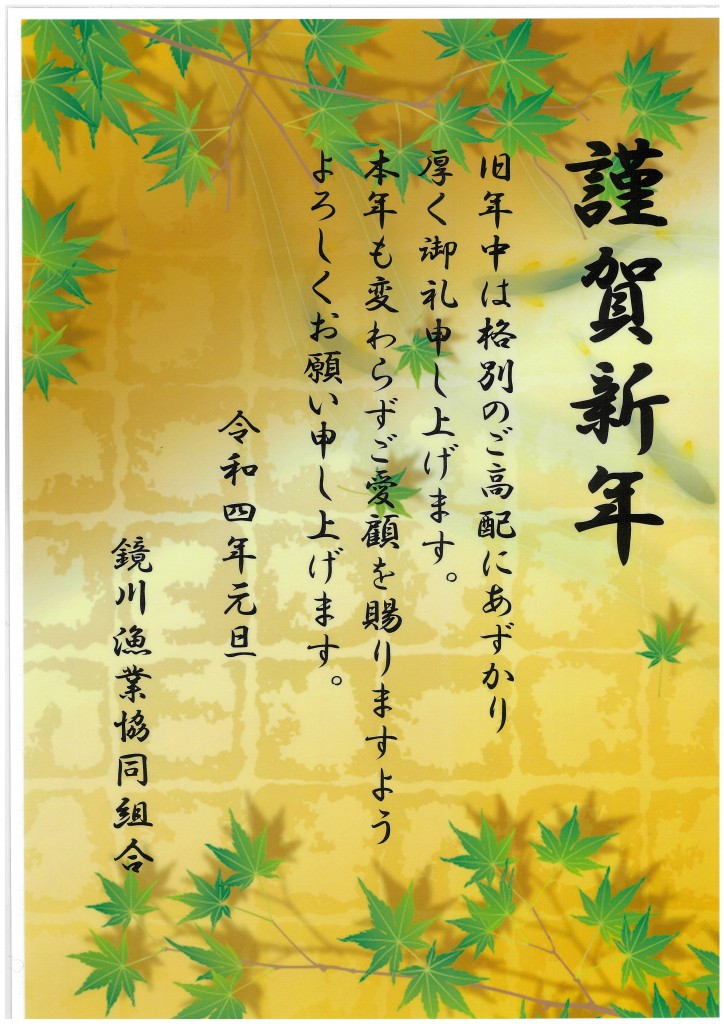 謹賀新年
旧年中は格別のご高配にあずかり
厚く御礼申し上げます。
本年も変わらずご愛顧を賜りますよう
よろしくお願い申し上げます。
令和四年元旦
鏡川漁業協同組合